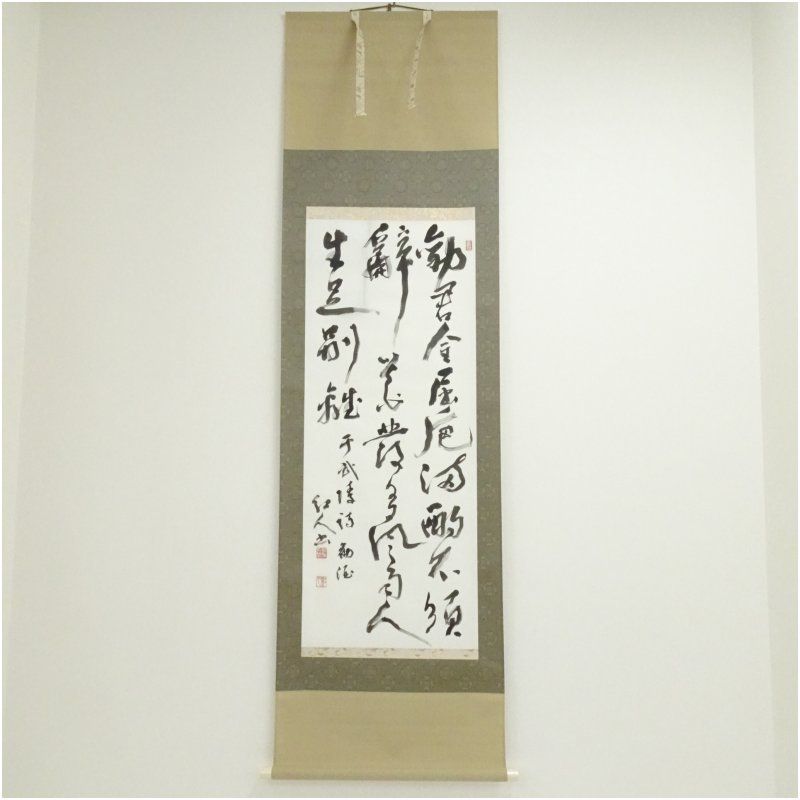 勧君金屈卮満酌不須
辭花發多風雨人
生足別離
于武陵詩 勧酒
紅人書